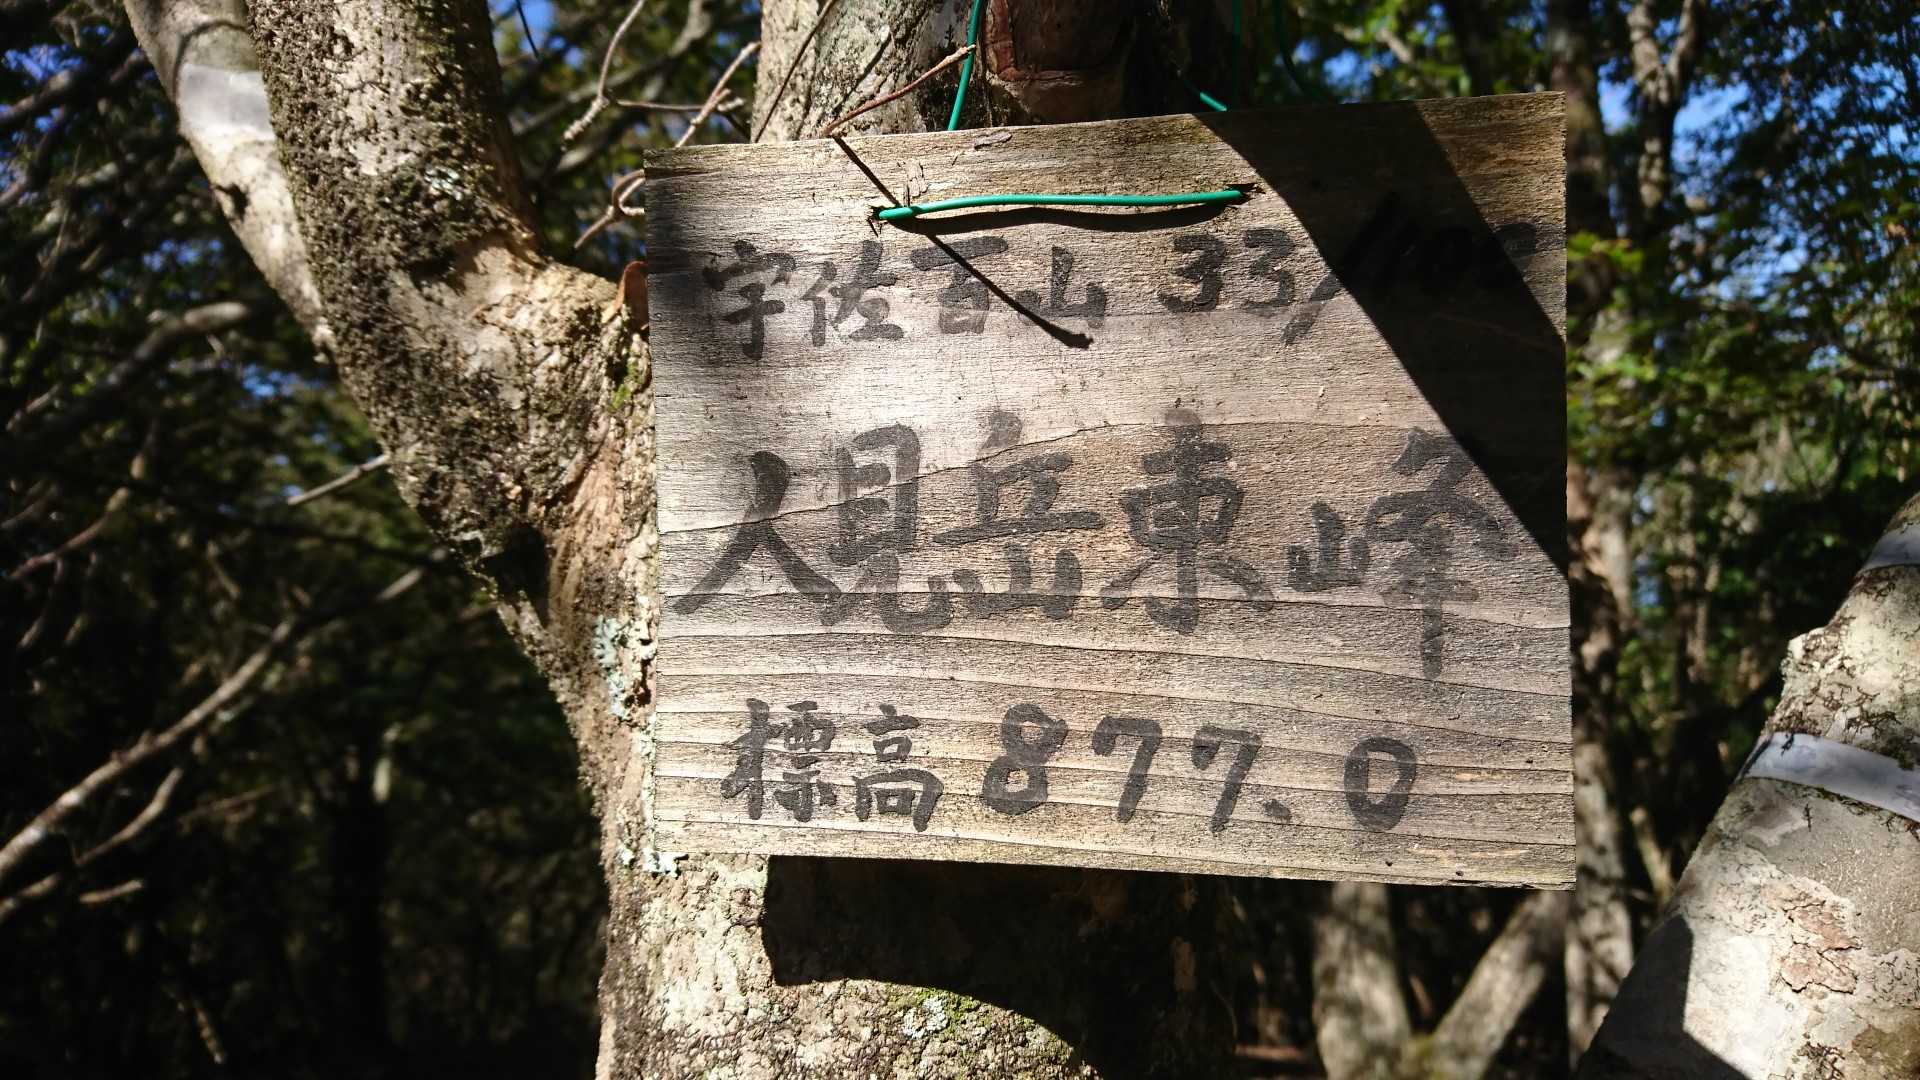 宇佐百山 33/100
人見岳東峰
標高 877.0